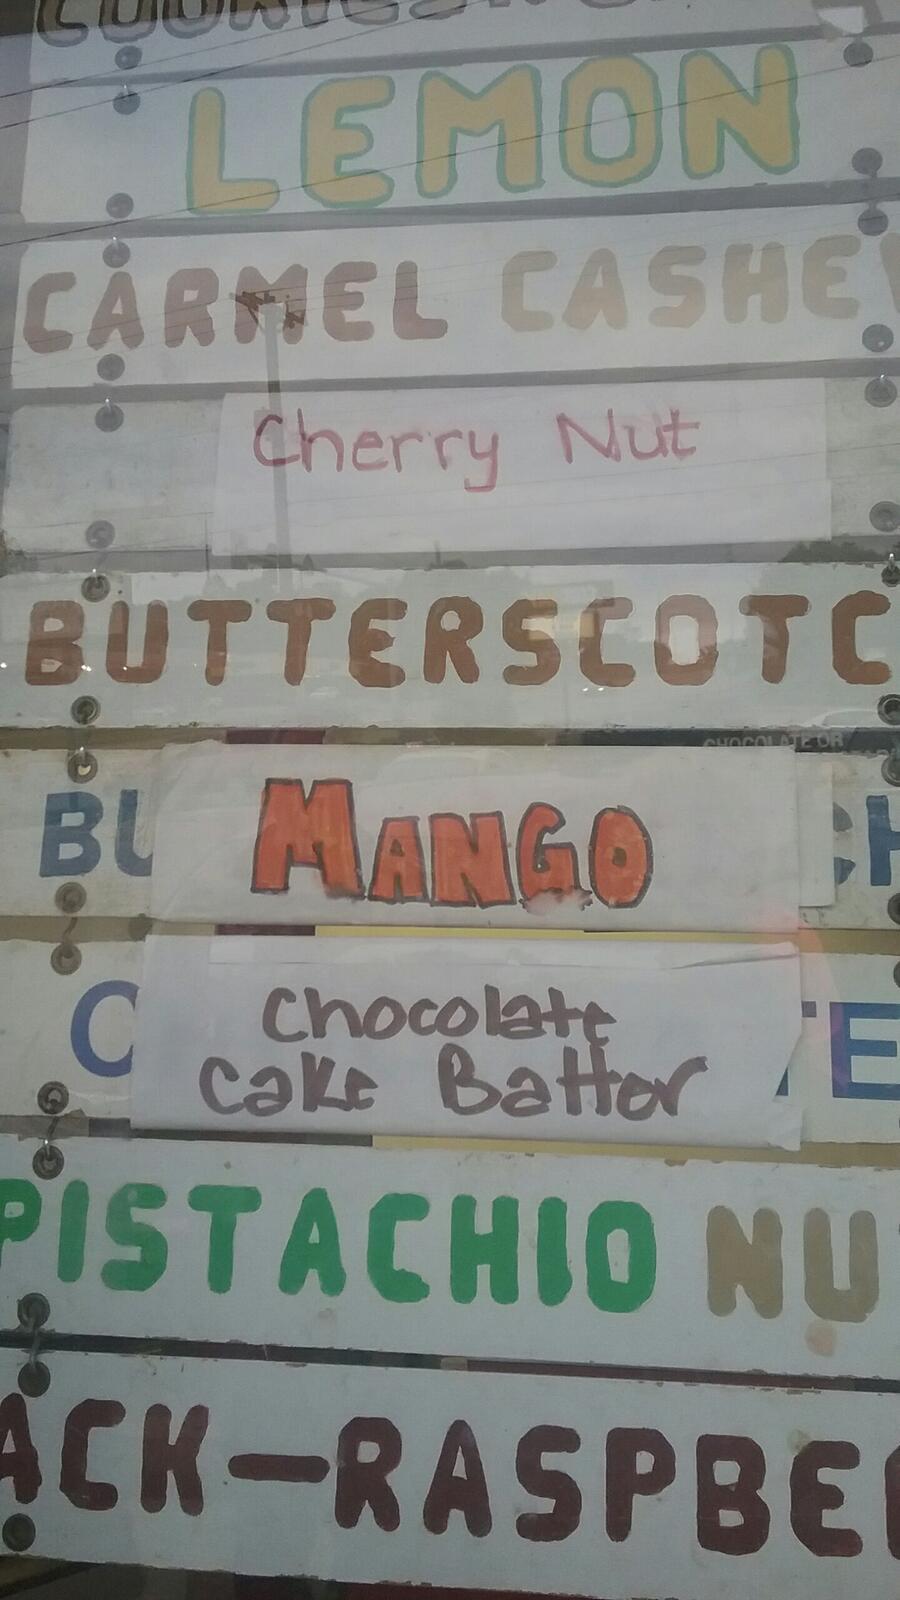 LEMON
CARMEL CASHEW
Cherry Nut
BUTTERSCOTC
CHOCOLATE OR
BU
MANGO
CH
Chocolate
Cake Batter
C
TE
PISTACHIO NU
ACK-RASPBE